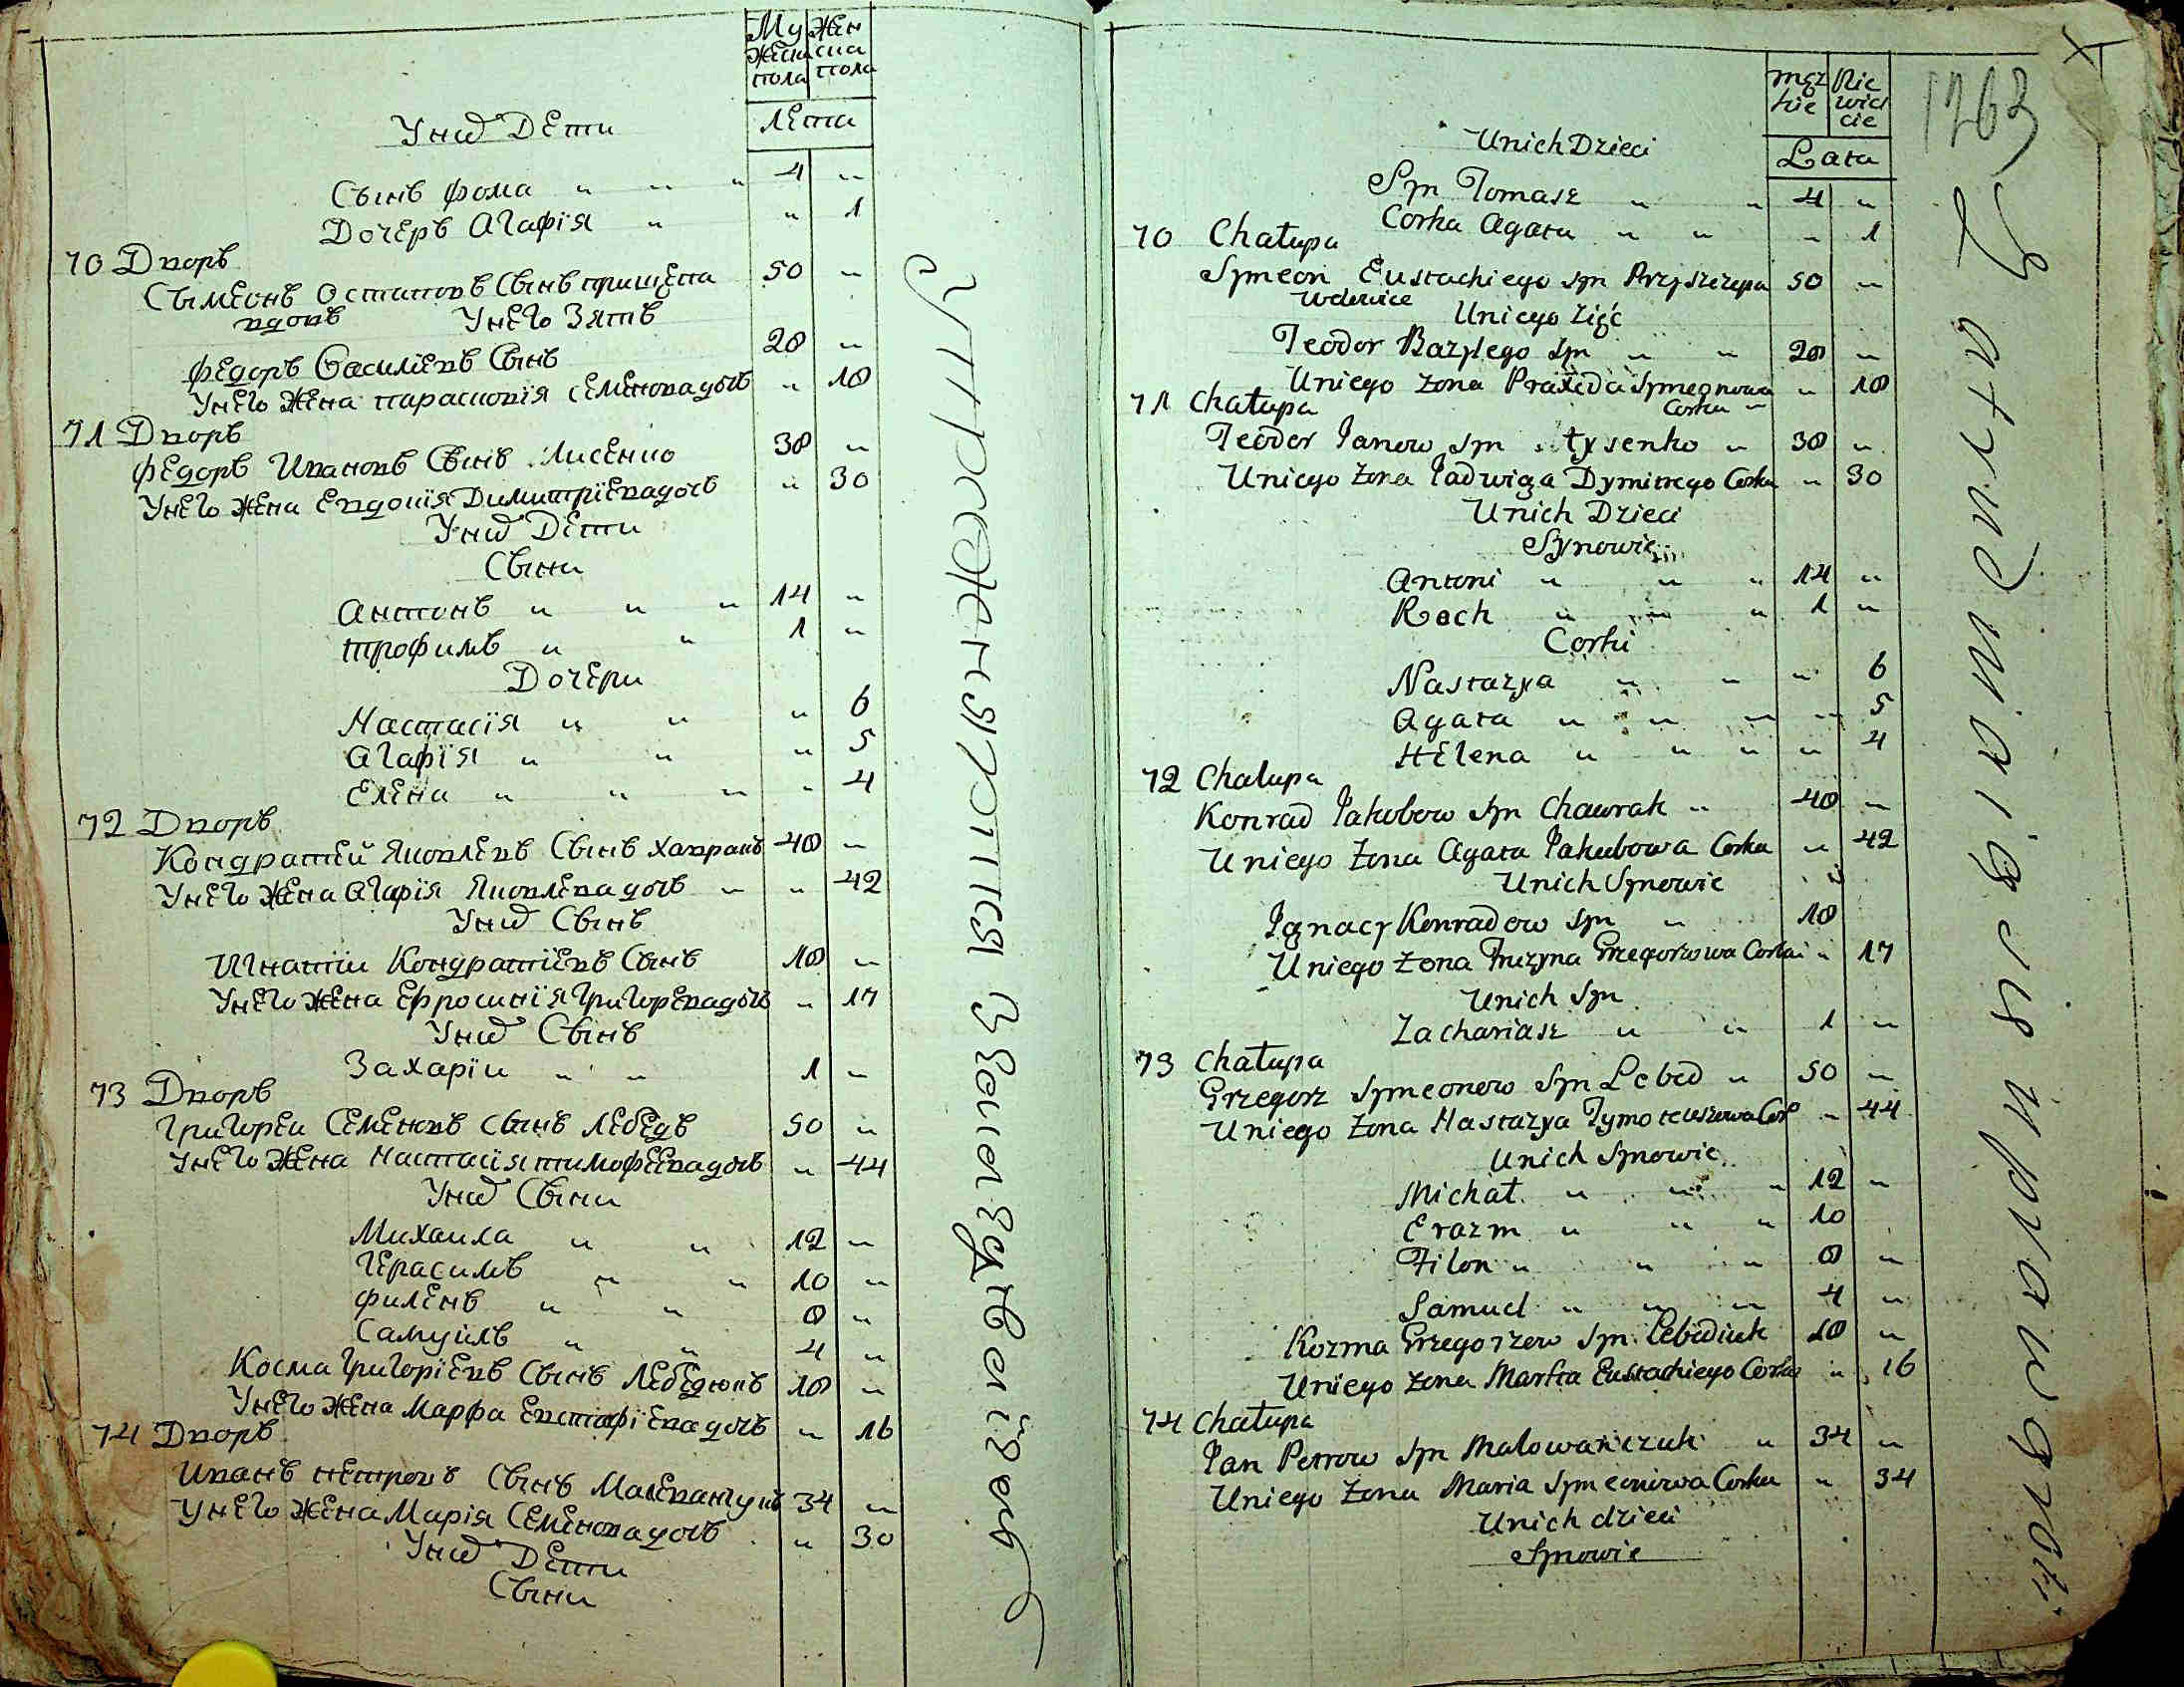 Мужеска пола
Женска пола
Лета
У них Дети
Сынъ Фома " " " 4 "
Дочерь Агафія " " 1
70 Дворъ
Сымеонъ Остаповъ Сынъ Прищепа 50 "
вдовъ У него Зять
Федоръ Василиевъ Сынъ 28 "
У него Жена Парасковія Семеновадочь " 18
71 Дворъ
Федоръ Ивановъ Сынъ Лисенко 38 "
У него Жена Евдокія Димитріевадочь " 30
У них Дети
Сыни
Антонъ " " " 14 "
Трофимъ " " 1 "
Дочери
Настасія " " " 6
Агафія " " " 5
Елена " " " " 4
72 Дворъ
Кондратей Яковлевъ Сынъ Хавракъ 48 "
У него Жена Агафія Яковлевадочь " " 42
У них Сынъ
Игнатіи Кондратіевъ Сынъ 18 "
У него Жена Ефросинія Григоревадочь " 17
У них Сынъ
Захаріи " " 1 "
73 Дворъ
Григореи Семеновъ Сынъ Лебедь 50 "
У него Жена Настасія Тимофеевадочь " 44
У них Сыни
Михаила " " 12 "
Герасимъ " " 10 "
Филенъ " " 8 "
Самуилъ " " 4 "
Косма Григоріевъ Сынъ Лебедюкъ 18 "
У него Жена Марфа Евстафіевадочь " 16
74 Дворъ
Иванъ Петровъ Сынъ Малеванчукъ 34 "
У него Жена Марія Семеновадочь " 30
У них Дети
Сыни
męzkie
Niewieście
Lata
1263
Unich Dzieci
Syn Tomasz " " 4 "
Corka Agata " " " 1
70 Chałupa
Symeon Eustachiego syn Przyszczepa 50 "
Wdowiec Uniego Zięć
Teodor Bazylego syn " " 28 "
Uniego Zona Praxeda Symeonowa Corka " " 18
71 Chałupa
Teodor Janow syn Łysenko " 38 "
Uniego Zona Jadwiga Dymitrego Corka " 30
Unich Dzieci
Synowie
Antoni " " " 14 "
Roch " " " 1 "
Corki
Nastazya " " " 6
Agata " " " " 5
Helena " " " " 4
72 Chalupa
Konrad Jakubow syn Chawrak " 48 "
Uniego Zona Agata Jakubowa Corka " 42
Unich Synowie
Ignacy Konradow syn " 18
Uniego Zona Fruzyna Grzegorzowa Corka " 17
Unich Syn
Zachariasz " " 1 "
73 Chałupa
Grzegorz Symeonow Syn Lebed " 50 "
Uniego Zona Nastazya Tymoteuszowa Cor " 44
Unich Synowie
Michał " " " 12 "
Erazm " " " 10
Filon " " " 8 "
Samuel " " " 4 "
Kozma Grzegorzew Syn Lebediuk 18 "
Uniego Zona Marta Eustachiego Corka " 16
74 Chałupa
Jan Petrow Syn Malowańczuk " 34 "
Uniego Zona Maria Symeonowa Corka " 34
Unich dzieci
Synowie